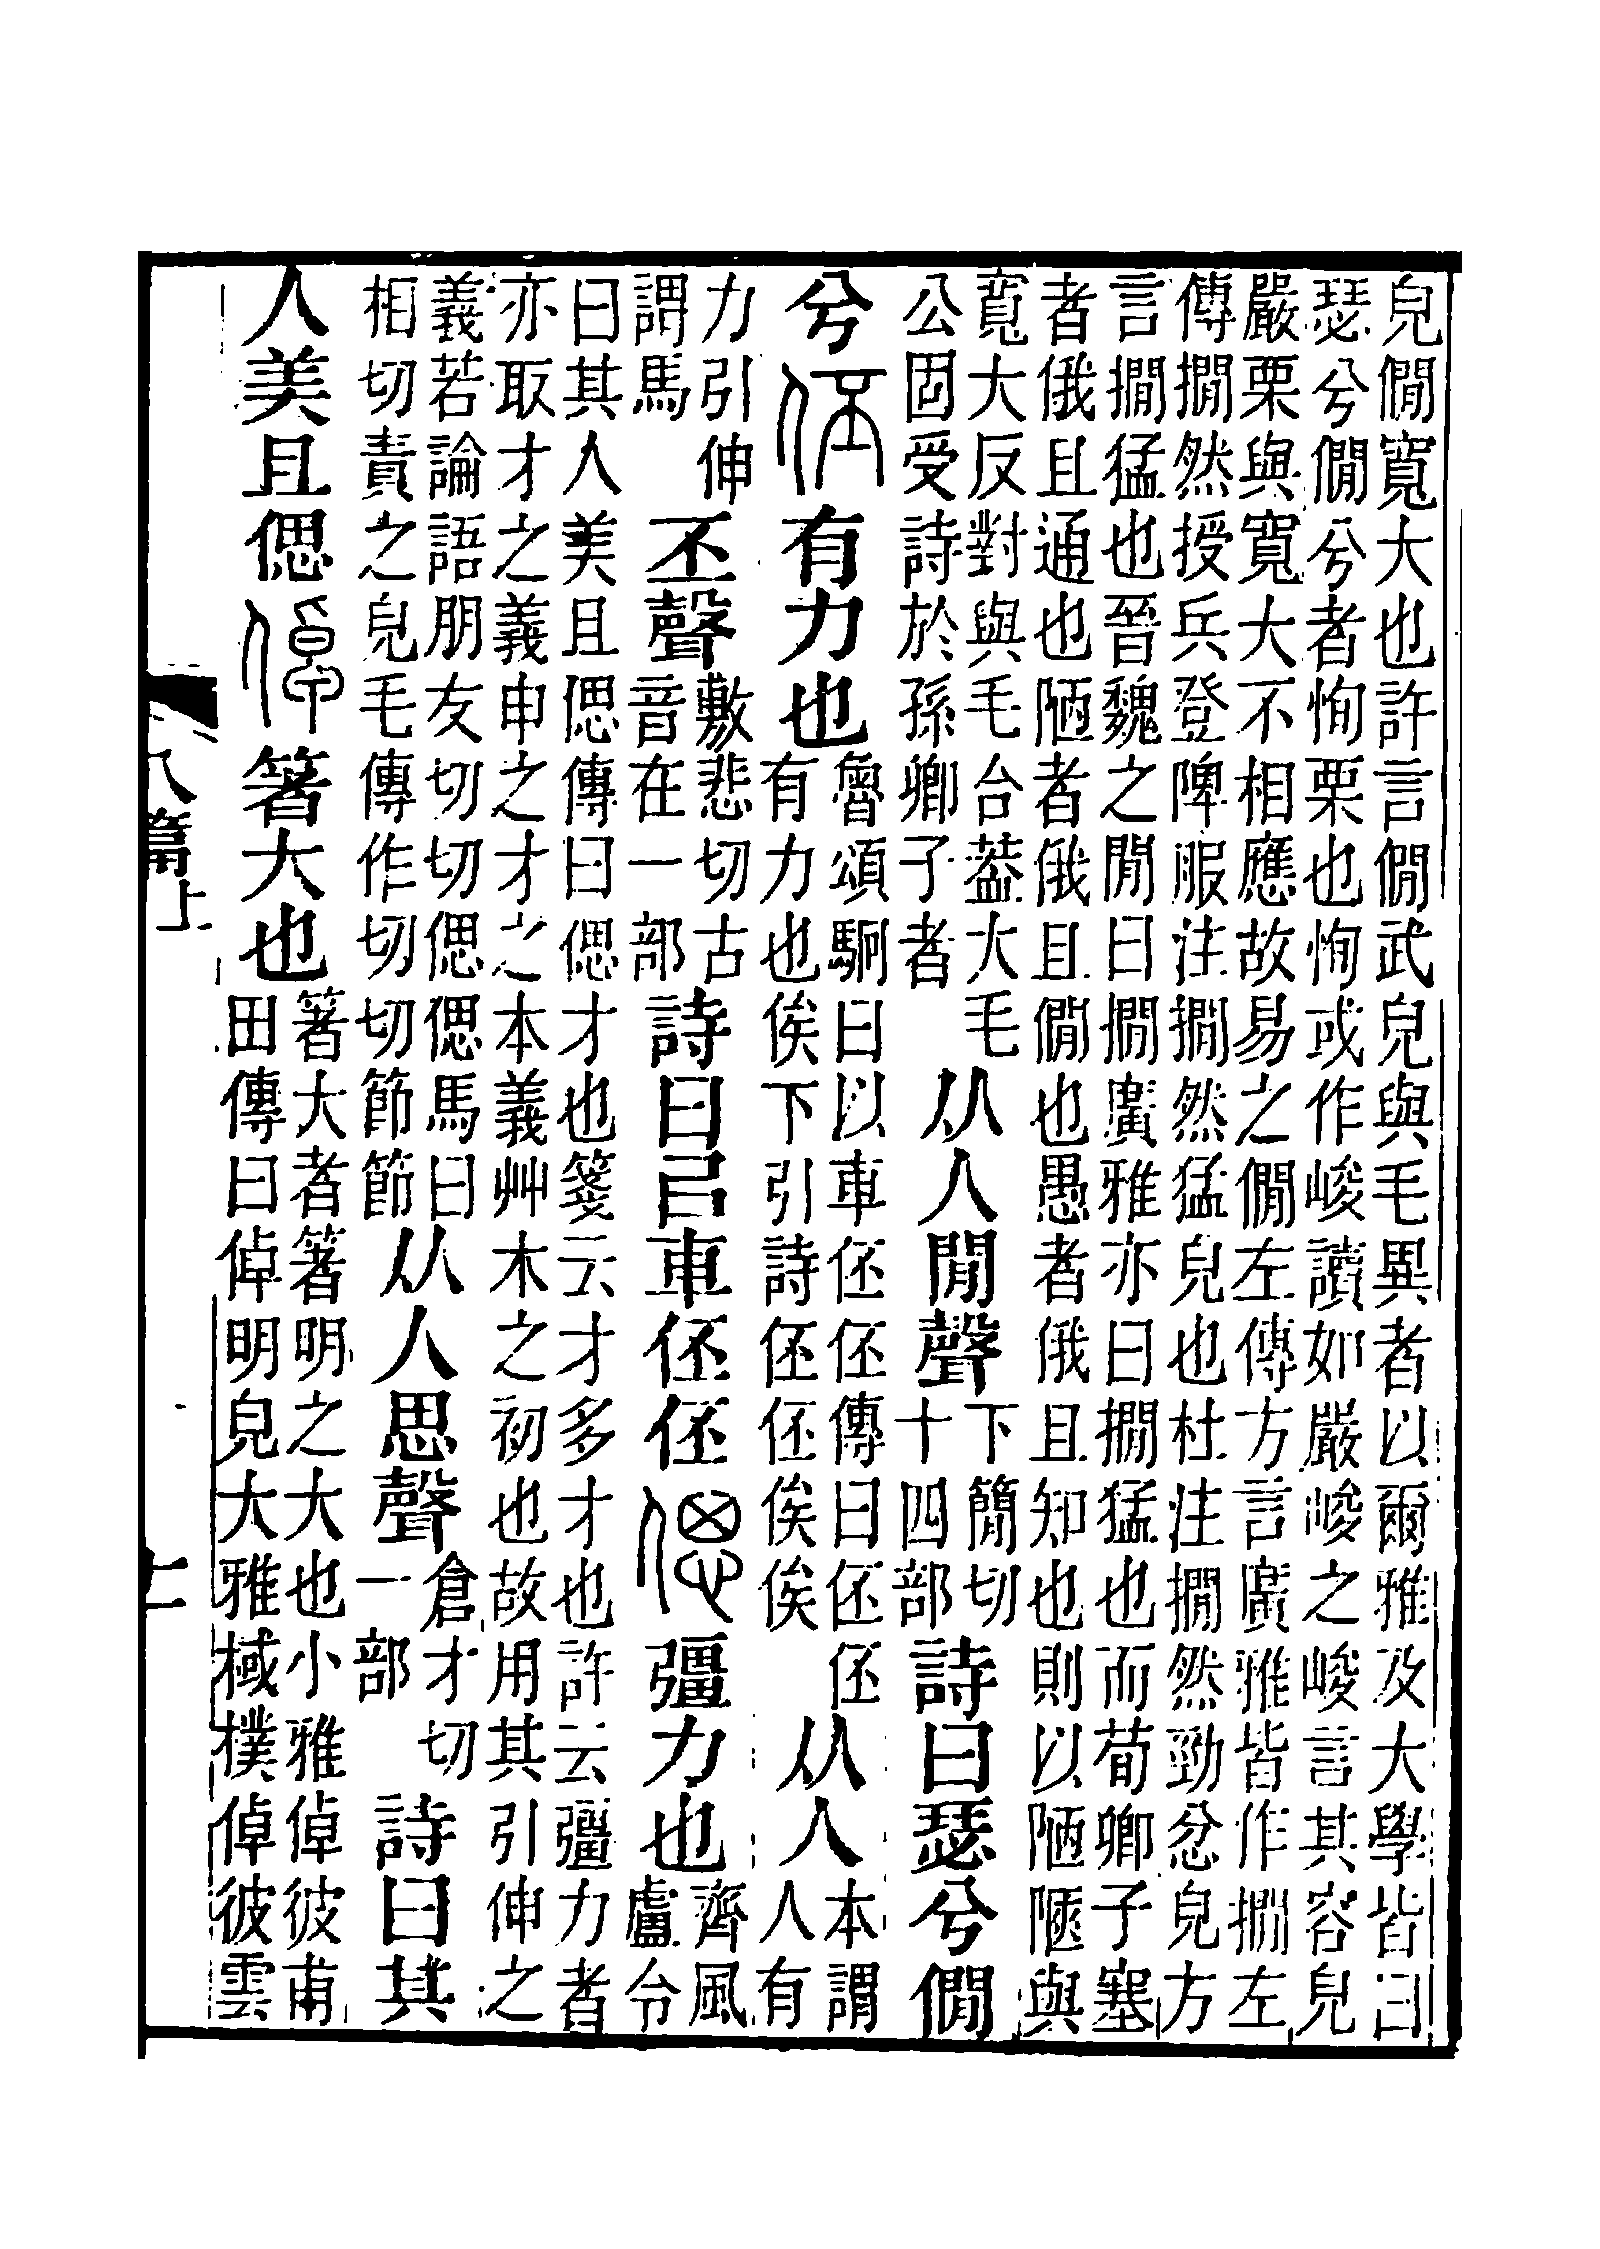 皃僩寬大也許言僩武皃與毛異者以爾雅及大學皆曰
瑟兮僩兮者恂栗也恂或作峻讀如嚴峻之峻言其容皃
嚴栗與寬大不相應故易之僩左傳方言廣雅皆作撊左
傳撊然授兵登陴服注撊然猛皃也杜注撊然勁忿皃方
言撊猛也晉魏之閒曰撊廣雅亦曰撊猛也而荀卿子塞
者俄且通也陋者俄且僩也愚者俄且知也則以陋陿與
寬大反對與毛合葢大毛
公固受詩於孫卿子者
从人閒聲
下簡切
十四部
詩曰瑟兮僩
兮伾有力也
魯頌駉曰以車伾伾傳曰伾伾
有力也俟下引詩伾伾俟俟
从人
本謂
人有
力引伸
謂馬
丕聲
敷悲切古
音在一部
詩曰㠯車伾伾偲彊力也
齊風
盧令
曰其人美且偲傳曰偲才也箋云才多才也許云彊力者
亦取才之義申之才之本義艸木之初也故用其引伸之
義若論語朋友切切偲偲馬曰
相切責之皃毛傳作切切節節
从人思聲
倉才切
一部
詩曰其
人美且偲倬箸大也
箸大者箸明之大也小雅倬彼甫
田傳曰倬明皃大雅棫樸倬彼雲
八篇上
七